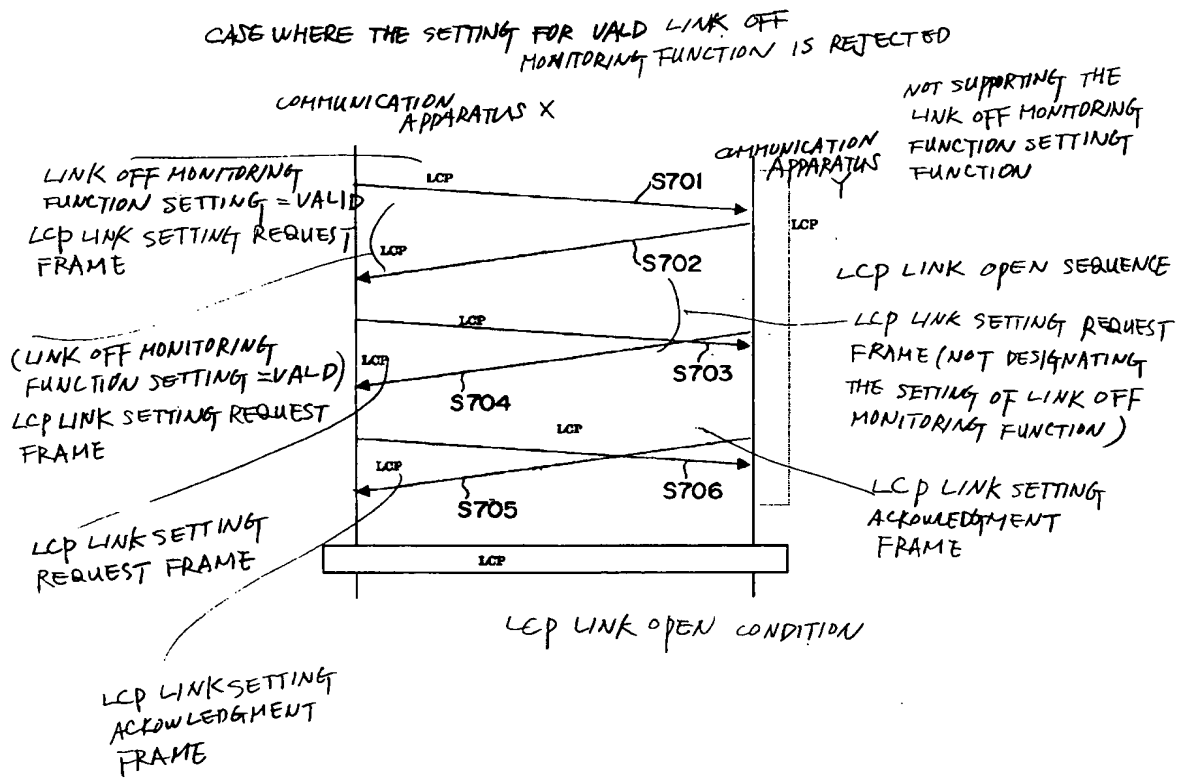 CASE WHERE THE SETTING FOR VALD LINK OFF
MONITORING FUNCTION IS REJECTED
COMMUNICATION
APPARATUS X
NOT SUPPORTING THE
LINK OFF MONITORING
FUNCTION SETTING
FUNCTION
COMMUNICATION
APPARATUS
Y
LINK OFF MONITORING
FUNCTION SETTING = VALID
LCP LINK SETTING REQUEST
FRAME
LCP
S701
LCP
LCP
S702
LCP LINK OPEN SEQUENCE
LCP LINK SETTING REQUEST
FRAME (NOT DESIGNATING
THE SETTING OF LINK OFF
MONITORING FUNCTION)
LCP
S703
(LINK OFF MONITORING
FUNCTION SETTING =VALD)
LCP LINK SETTING REQUEST
FRAME
LCP
S704
LCP
S706
LCP
S705
LCP LINK SETTING
ACKOWLEDGMENT
FRAME
LCP LINK SETTING
REQUEST FRAME
LCP
LCP LINK OPEN CONDITION
LCP LINK SETTING
ACKOWLEDGMENT
FRAME